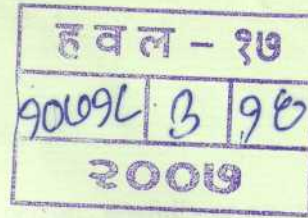 हवल - १७
१०७१८ ३
२००७